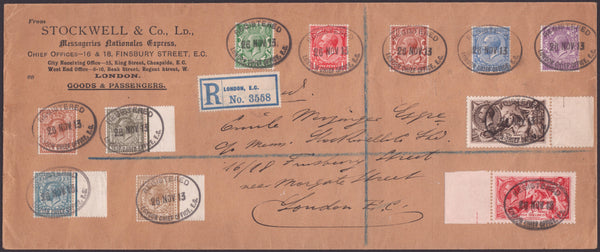 From
STOCKWELL & Co., LD.,
Messageries Nationales Express,
CHIEF OFFICES—16 & 18, FINSBURY STREET, E.C.
City Receiving Office—15, King Street, Cheapside, E.C.
West End Office—8-10, Beak Street, Regent Street, W.
LONDON.
GOODS & PASSENGERS.
REGISTERED
28 NOV 13
LONDON CHIEF OFFICE, E.C.
R
LONDON, E.C.
No. 3558
Emile
c/o Mess. Stockwell & Co
16/18 Finsbury Street
near Moorgate Street
London E.C.